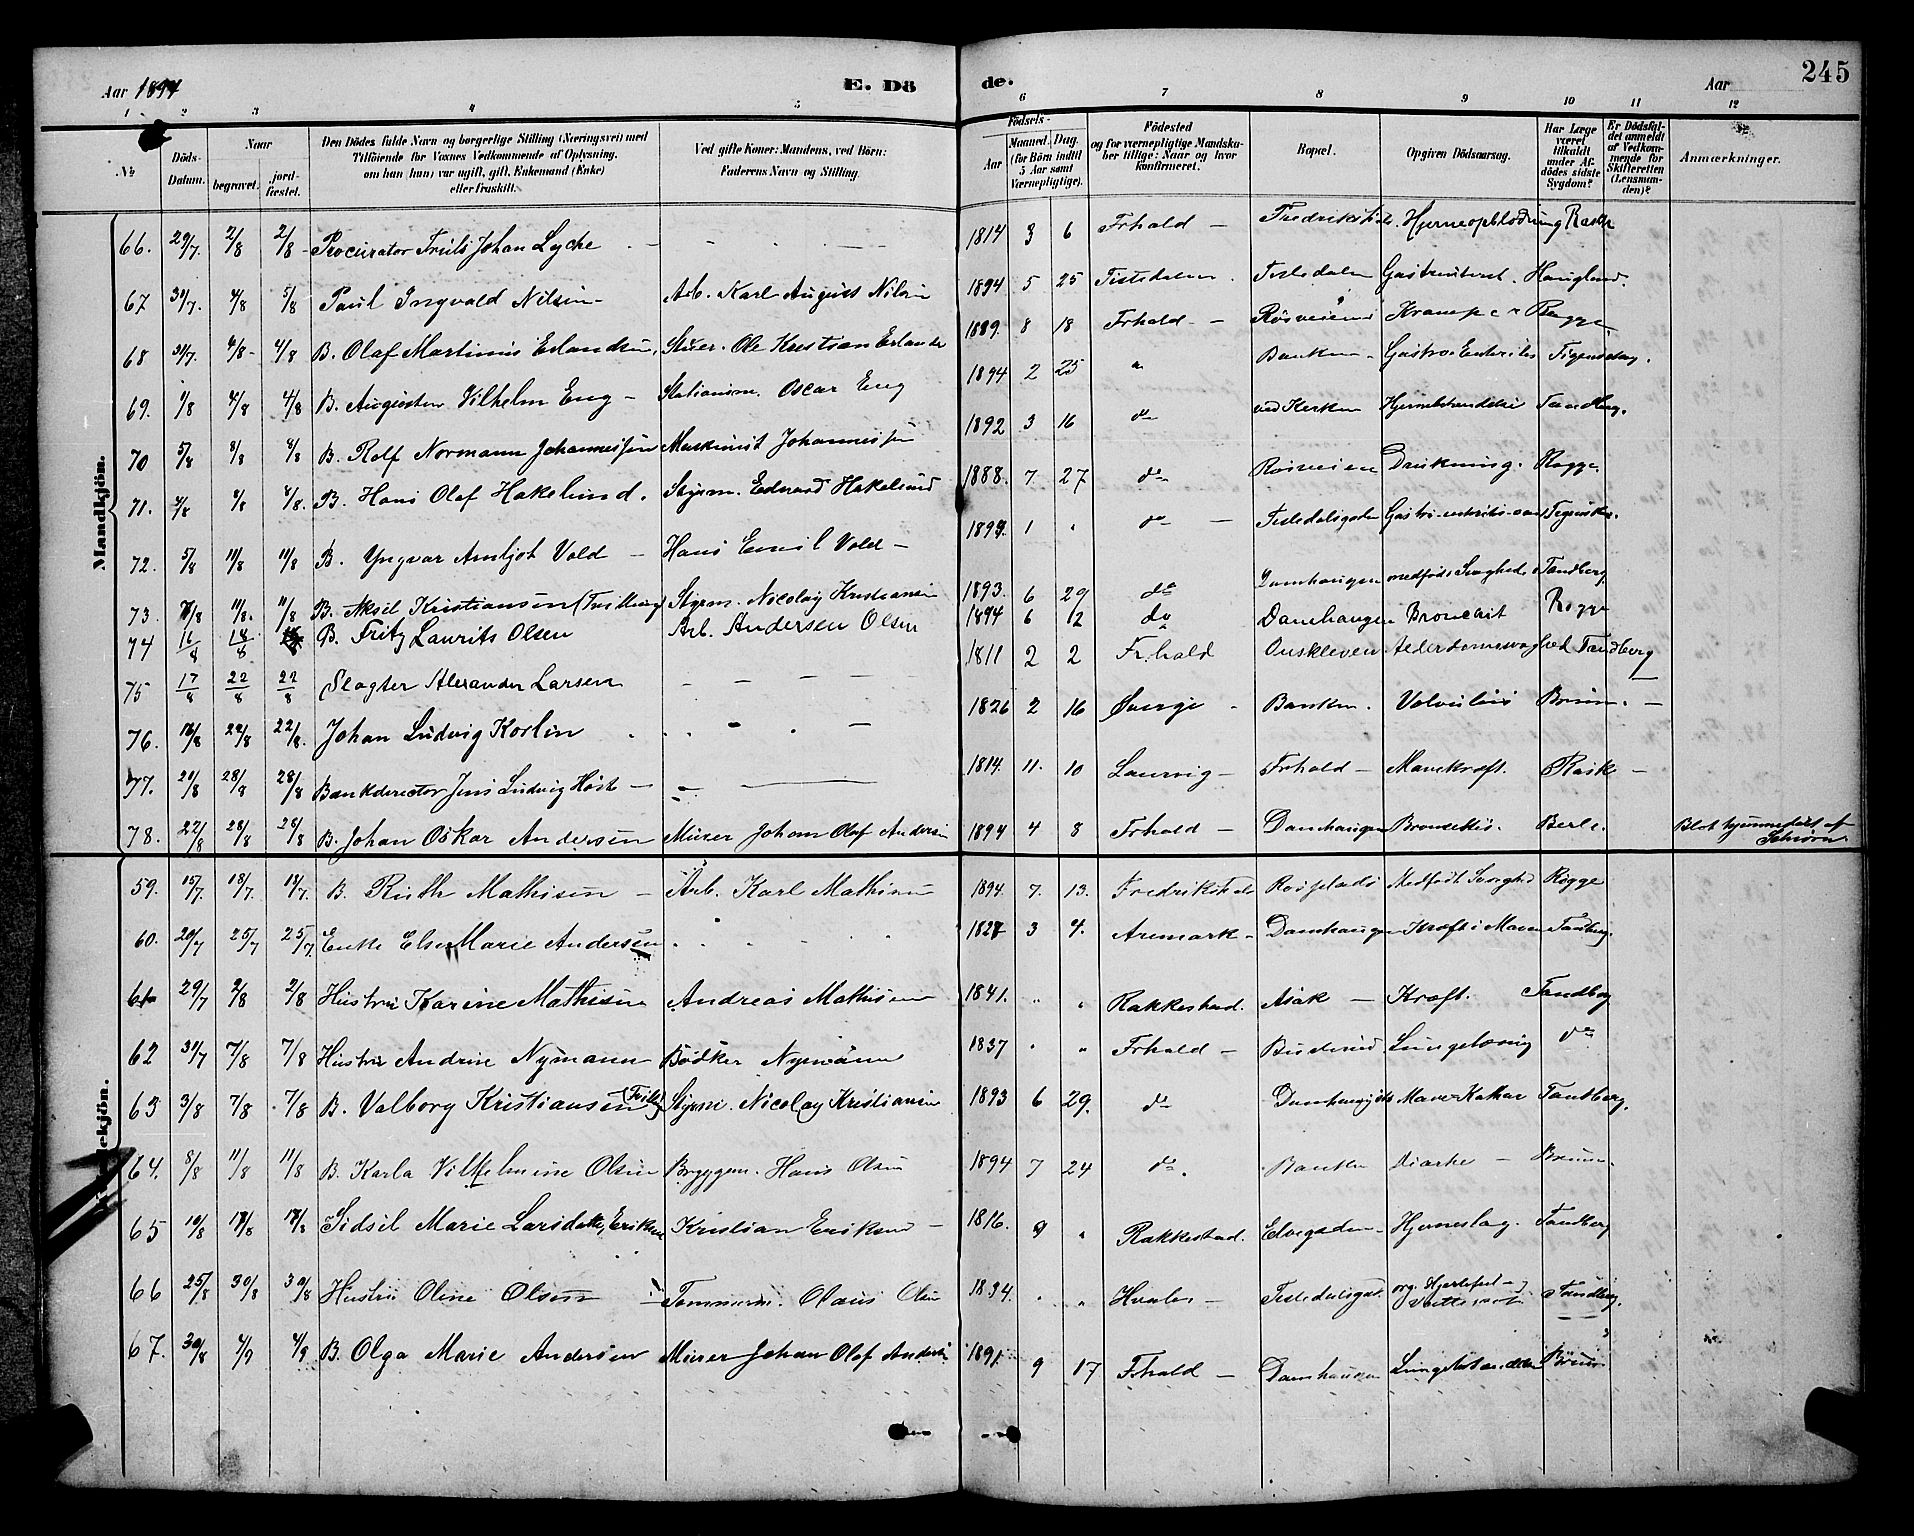 Aar 1894
E. Dö
de.
Aar
245
1 2 3 4 5 6 7 8 9 10 11 12
No
Döds-Datum.
Naar
begravet.
jord-fæstet.
Den Dödes fulde Navn og borgerlige Stilling (Næringsvei) med
Tilföiende for Voxnes Vedkommende af Oplysning,
om han (hun) var ugift, gift, Enkemand (Enke)
eller fraskilt.
Ved gifte Koner: Mandens, ved Börn:
Faderens Navn og Stilling.
Födsels-
Aar
Maaned. Dag.
(for Börn indtil
5 Aar samt
Værnepligtige).
Födested
og for værnepligtige Mandska-
ber tillige: Naar og hvor
konfirmeret.
Bopæl.
Opgiven Dödsaarsag.
Har Læge
været
tilkaldt
under Af-
dödes sidste
Sygdom?
Er Dödsfal-
det anmeldt
af Vedkom-
mende for
Skifteretten
(Lensman-
den)?
Anmærkninger.
Mandkjön.
66. 29/7. 2/8 2/8 Procurator Truls Johan Lyche 1814 3 6 Frhald Hjerneopblödning Rask
67 31/7. 4/8 5/8 Paul Ingvald Nilsen Arb. Karl August Nilsen 1894 5 25 Tistedalen Tistedalen Haugland.
68 31/7. 4/8 4/8 B. Olaf Martinius Erlandsen Ole Kristian Erlandsen 1889. 8 18 Frhald Rösveien Krampe Rogge
69. 1/8 4/8 4/8 B. Vilhelm Eng Stationsm. Oscar Eng 1894 2 25 " Banken Gastro-Enterites
70 5/8 8/8 8/8 B. Rolf Normann Johannessen Maskinist Johannessen 1892 3 16 do ved Kirken Tandberg.
71. 4/8 8/8 8/8. B. Hans Olaf Hakelund. Styrm. Edvard Hakelund 1888. 7 27 do Rösveien Drukning. Rogge
72. 5/8 11/8 11/8 B. Yngvar Arntjot Vold Hans Emil Vold 1 " do
73. 11/8. 11/8 B. Aksel Kristiansen (Tvilling) Styrm. Nicolay Kristiansen 1893. 6 29 do Damhaugen medfödt Svaghed Tandberg
74 16/8 18/8 B. Fritz Laurits Olsen Arb. Andersen Olsen 1894 6 12 do Damhaugen Bronchit Rogge
75 17/8 22/8 22/8 Slagter Alexander Larsen 1811 2 2 Fr.hald Ouskleven Alderdomssvaghed Tandberg
76. 18/8 22/8 22/8. Johan Ludvig Korlin 1826 2 16 Banken. Volvulus Bruun.
77. 21/8 28/8 28/8 Bankdirector Jens Ludvig Höst 1814. 11. 10 Laurvig Frhald Mavekræft. Rask
78. 22/8 28/8 28/8 B. Johan Oskar Andersen Murer Johan Olaf Andersen 1894 4 8 Frhald Damhaugen Berle.
59. 15/7. 18/7. 18/7. B. Ruth Mathisen Arb. Karl Mathisen 1894. 7. 13. Fredrikstad Medfödt Svaghed Rogge
60. 20/7 25/7 25/7. Enke Else Marie Andersen 1827 3 4. Aremark Damhaugen Kræft i Maven Tandberg
61 29/7 2/8 2/8 Hustru Karine Mathisen Andreas Mathisen 1841. " " Rakkestad. Asak Kræft. Tandberg
62 31/7 7/8 7/8 Hustru Andrine Nymann Bödker Nymann 1837 " " Frhald do
63 3/8 7/8 7/8 B. Valborg Kristiansen (Tvill.) Styrm. Nicolay Kristiansen 1893 6 29. do Mave Katar Tandberg.
64. 8/8 11/8 11/8 B. Karla Vilhelmine Olsen Bryggem. Hans Olsen 1894 7 24 do. Banken Diarhe Bruun.
65 10/8 17/8 17/8 Sidsil Marie Larsdatter, Eriksen Kristian Eriksen 1816. 9 " Rakkestad. Hjerneslag. Tandberg
66 25/8 30/8 30/8 Hustru Oline Olsen Tømmerm. Olaus Olsen 1834. " " Hvaler org. Hjertefeil Tandberg.
67. 30/8 4/9 4/9 B. Olga Marie Andersen Murer Johan Olaf Andersen 1891. 9 17 Frhald Damhaugen Bruun